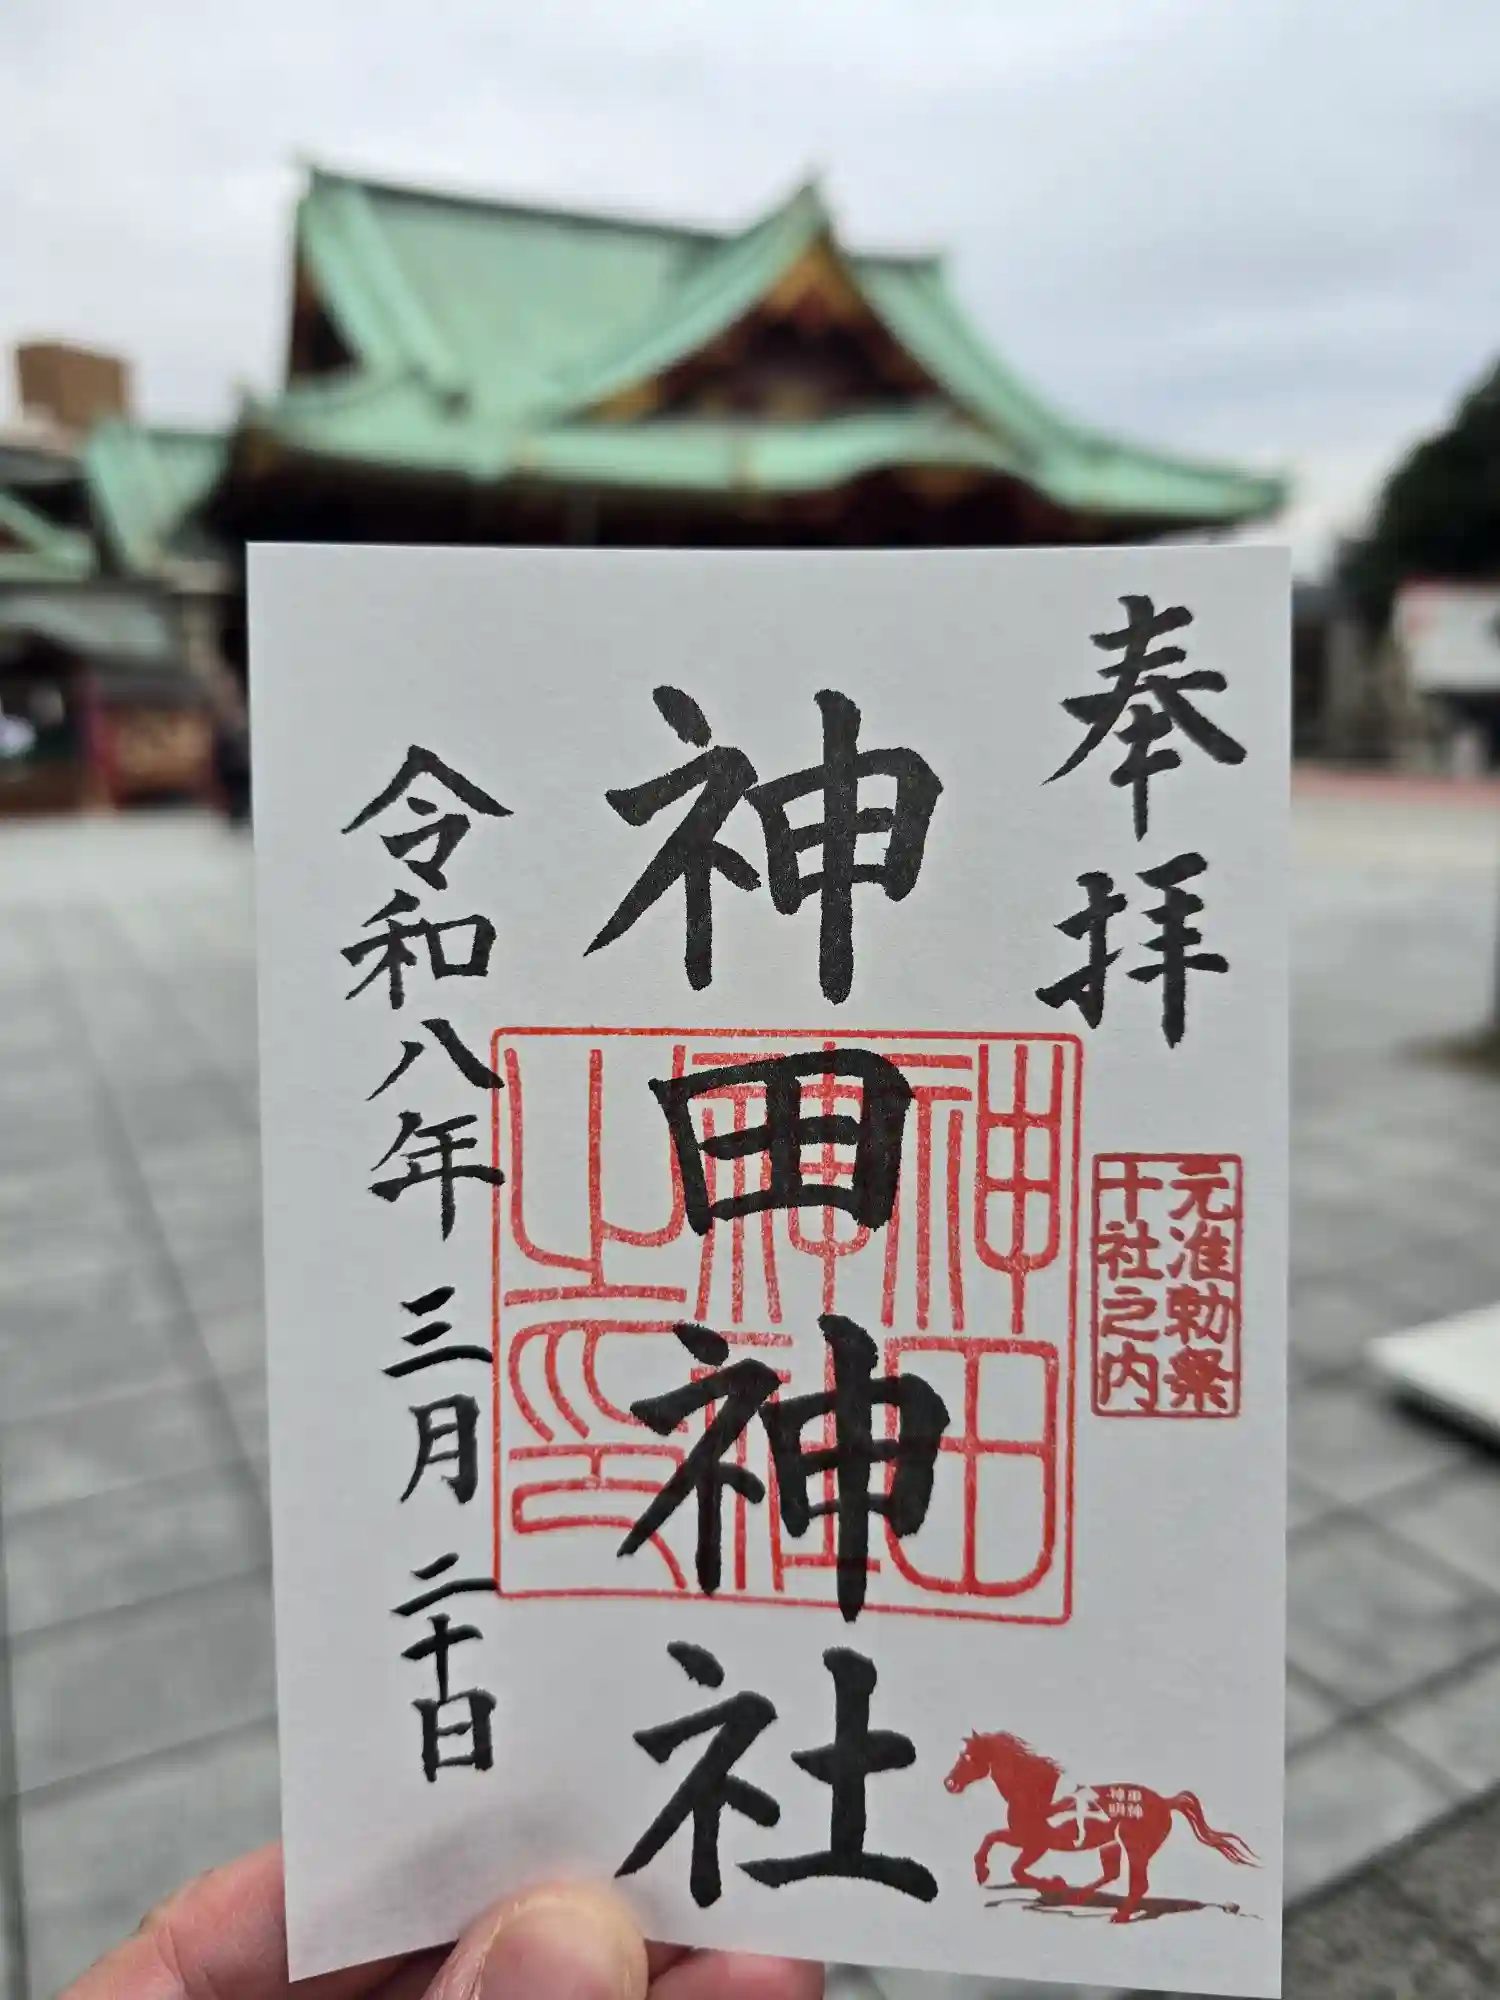 奉拝
元准勅祭
十社之内
神田神社
神田神社之印
令和八年 三月 二十日
神田
明神